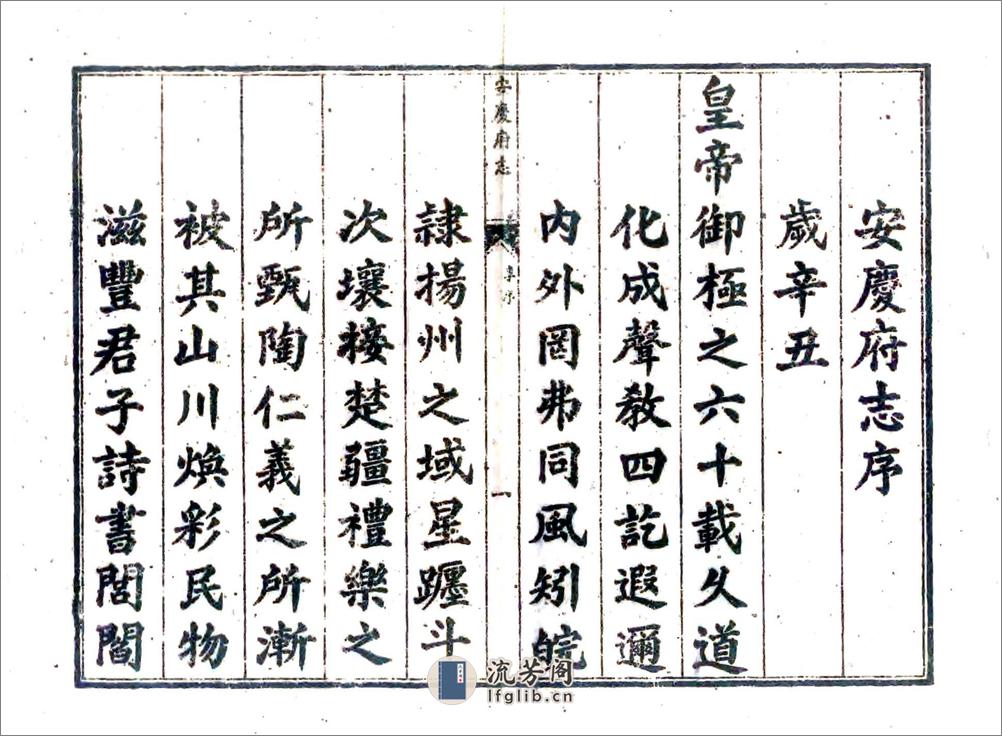 安慶府志序
歲辛丑
皇帝御極之六十載久道
化成聲教四訖遐邇
內外罔弗同風矧皖
安慶府志
序
一
隷揚州之域星躔斗
次壤接楚疆禮樂之
所甄陶仁義之所漸
被其山川煥彩民物
滋豐君子詩書閭閻
流芳阁
lfglib.cn